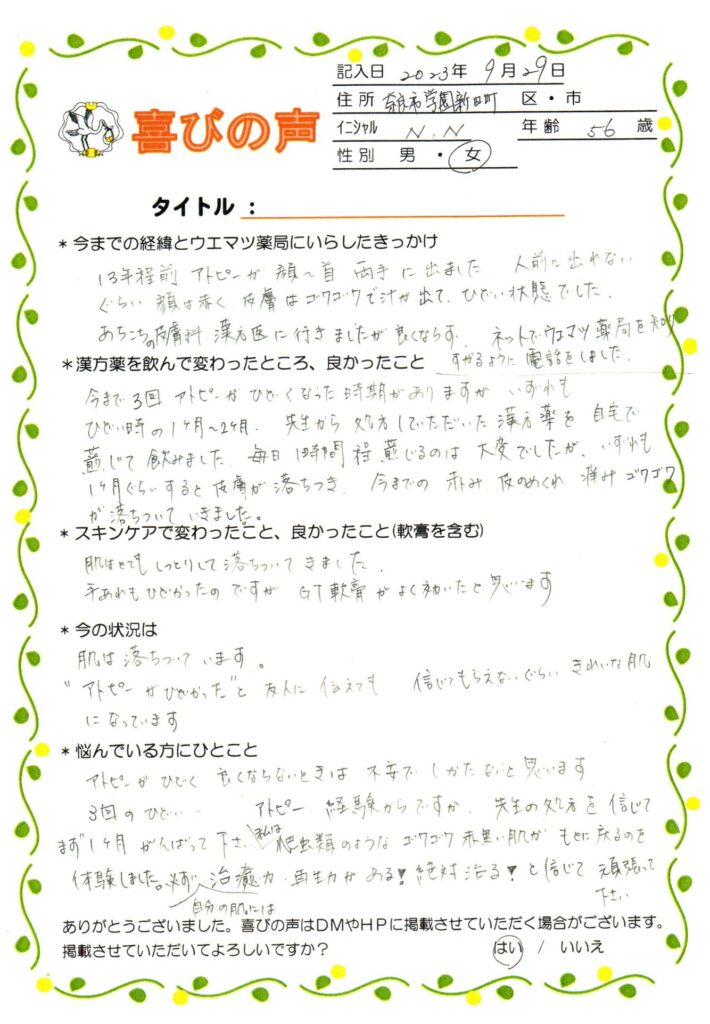 記入日 2023年 9月29日
住所 奈良市学園新田町 区・市
イニシャル N.N 年齢 56 歳
性別 男 ・ 女
喜びの声
タイトル :
* 今までの経緯とウエマツ薬局にいらしたきっかけ
13年程前 アトピーが 顔〜首 両手 に出ました 人前に出れない
ぐらい 顔は赤く 皮膚はゴワゴワで汁が出て、ひどい状態でした。
あちこちの皮膚科 漢方医に行きましたが良くならず、ネットでウエマツ薬局を知り
すがるように 電話をしました。
* 漢方薬を飲んで変わったところ、良かったこと
今まで3回 アトピーがひどくなった時期がありますが いずれも
ひどい時の1ヶ月〜2ヶ月、先生から処方していただいた漢方薬を自宅で
煎じて飲みました。毎日1時間程煎じるのは 大変でしたが、いずれも
1ヶ月ぐらいすると皮膚が落ちつき、今までの 赤み 皮のめくれ 痛み ゴワゴワ
が落ちついていきました。
* スキンケアで変わったこと、良かったこと(軟膏を含む)
肌はとてもしっとりして落ちついてきました。
手あれもひどかったのですが GT軟膏がよく効いたと思います
* 今の状況は
肌は落ちついています。
"アトピーがひどかった"と友人に伝えても 信じてもらえないぐらい きれいな肌
になっています
* 悩んでいる方にひとこと
アトピーがひどく 良くならないときは 不安でしかたないと思います
3回のひどい… アトピー 経験からですが、先生の処方を信じて
まず1ヶ月 がんばって下さい 私は爬虫類のような ゴワゴワ 赤黒い肌が もとに戻るのを
体験しました。必ず 自分の肌には 治癒力・再生力がある! 絶対治る! と信じて 頑張って
下さい
ありがとうございました。喜びの声はDMやHPに掲載させていただく場合がございます。
掲載させていただいてよろしいですか? はい / いいえ